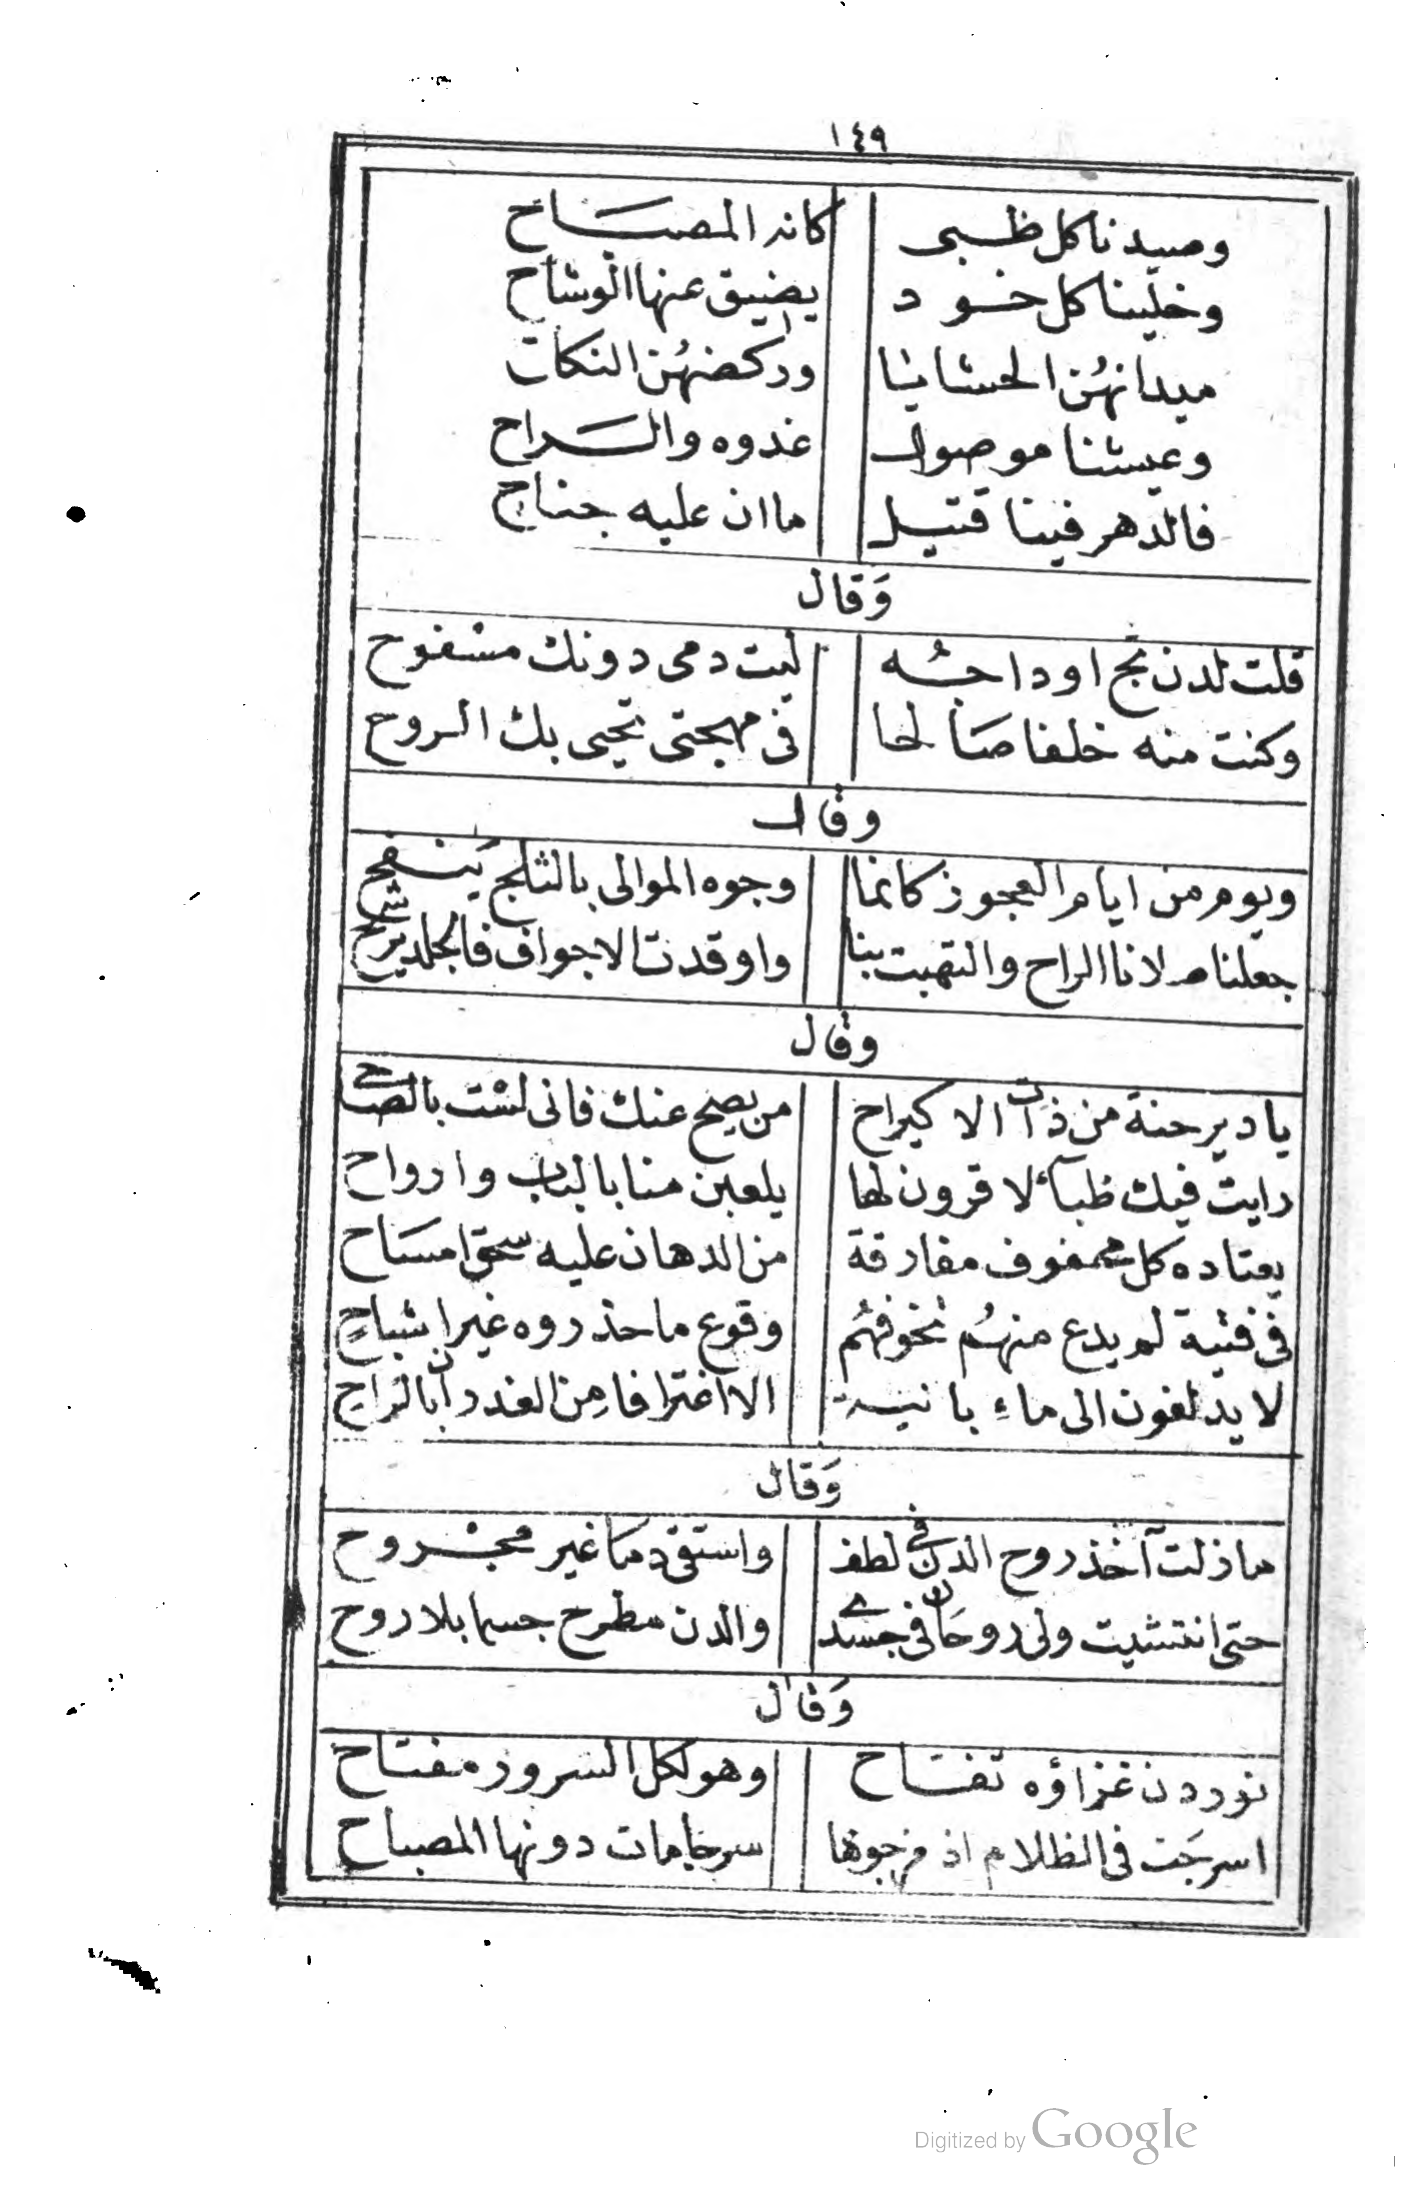 ١٤٩
وصيدنا كل ظبى كانه المصباح
وخلينا كل خود يضيق عنها الوشاح
ميدانهُن الحشايا وركضهُن النكاح
وعيشنا موصول غدوه والسراح
فالدهر فينا قتيل ما ان عليه جناح
وَقال
قلت لدن بج اوداجُه ليت دمى دونك مسفوح
وكنت منه خلفا صالحا فى مهجتى تحيى بك الروح
وقال
ويوم من ايام العجوز كانما وجوه الموالى بالثلج ينفح
جعلنا صلانا الراح والتهبت بنا واوقدت الاجواف فالجلد يرشح
وقال
يا دير حنة من ذات الاكيراح من يصح عنك فانى لست بالصاحى
رايت فيك ظبآء لا قرون لها يلعبن منا بالباب وارواح
يعتاده كل محفوف مفارقة من الدهان عليه سحق امساح
فى فتية لم يدع منهُم تخوفهُم وقوع ما حذروه غير اشباحٍ
لا يدلفون الى ماء بانية الا اغترافا مِن الغدران بالراح
وَقال
ما زلت آخذ روح الدن فى لطف واستقى دما غير مجروح
حتى انتشيت ولى روحان فى جسدى والدن مطرح جسما بلا روح
وَقال
نور دن غزاؤه تفتاح وهو لكل السرور مفتاح
اسرجَت فى الظلام اذ مزجوها سرجا مات دونها المصباح
Digitized by Google